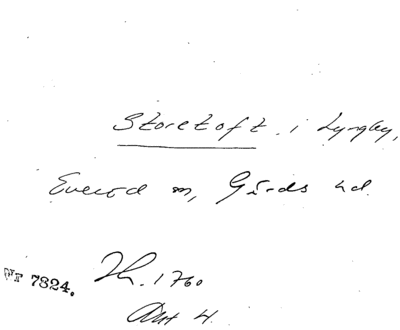 Storetoft i Lyngby,
Everöd sn, Gärds hd.
Nr 7824. Th. 1760
Akt 4.